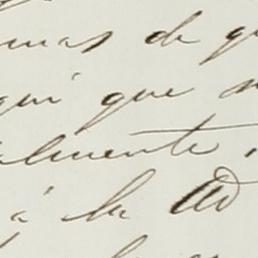 mas de q
qui que s
almente,
á la Ad